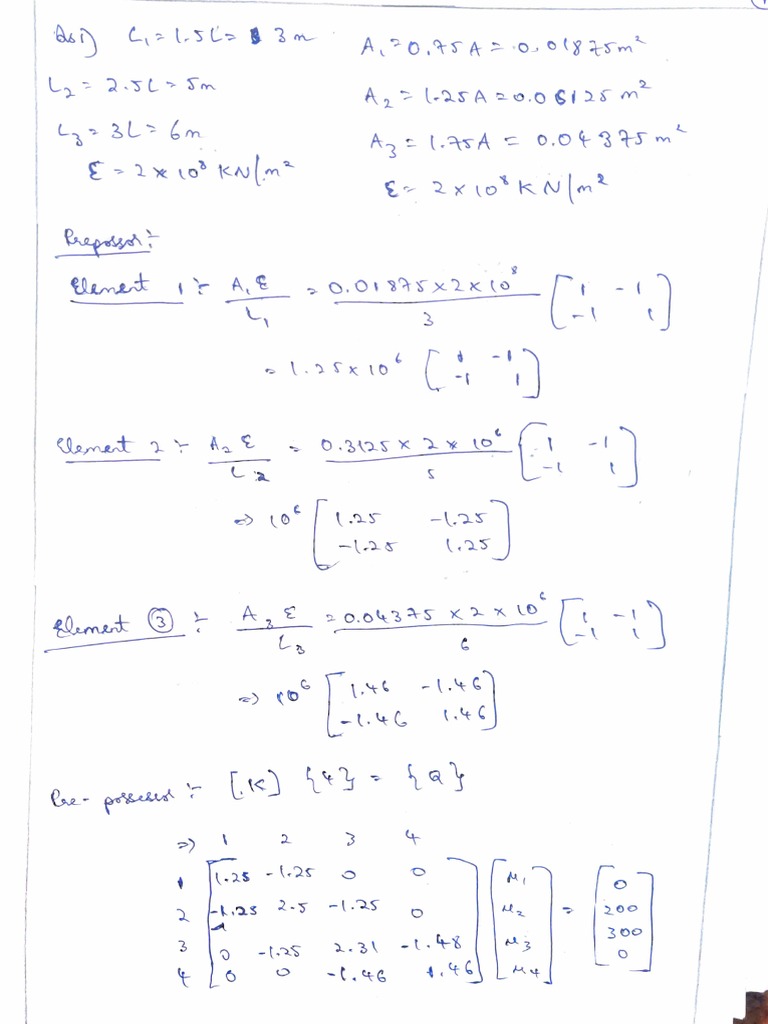 Qs 1) L₁ = 1.5L = 3m A₁ = 0.75A = 0.01875m²
L₂ = 2.5L = 5m A₂ = 1.25A = 0.03125 m²
L₃ = 3L = 6m A₃ = 1.75A = 0.04375 m²
E = 2 × 10⁸ KN/m² E = 2 × 10⁸ KN/m²
Prepossor:-
Element 1 :- A₁E/L₁ = 0.01875 × 2 × 10⁸/3 [1 -1; -1 1]
= 1.25 × 10⁶ [1 -1; -1 1]
Element 2 :- A₂E/L₂ = 0.3125 × 2 × 10⁶/5 [1 -1; -1 1]
=> 10⁶ [1.25 -1.25; -1.25 1.25]
Element ③ :- A₃E/L₃ = 0.04375 × 2 × 10⁶/6 [1 -1; -1 1]
=> 10⁶ [1.46 -1.46; -1.46 1.46]
Pre-possessor :- [K] {4} = {Q}
=> 1 2 3 4
1 [1.25 -1.25 0 0] [u₁] [0]
2 [-1.25 2.5 -1.25 0] [u₂] = [200]
3 [0 -1.25 2.31 -1.48] [u₃] [300]
4 [0 0 -1.46 1.46] [u₄] [0]